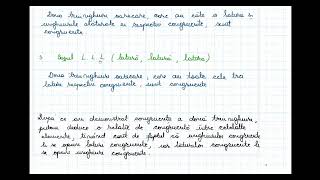 Două triunghiuri oarecare, care au câte o latură și
unghiurile alăturate ei respectiv congruente, sunt
congruente
3 Cazul L.L.L (latură, latură, latură)
Două triunghiuri oarecare, care au toate cele trei
laturi respectiv congruente, sunt congruente
După ce am demonstrat congruența a două triunghiuri,
putem deduce relații de congruență între celelalte
elemente, ținând cont de faptul că unghiurilor congruente
li se opun laturi congruente, iar laturilor congruente li
se opun unghiuri congruente.